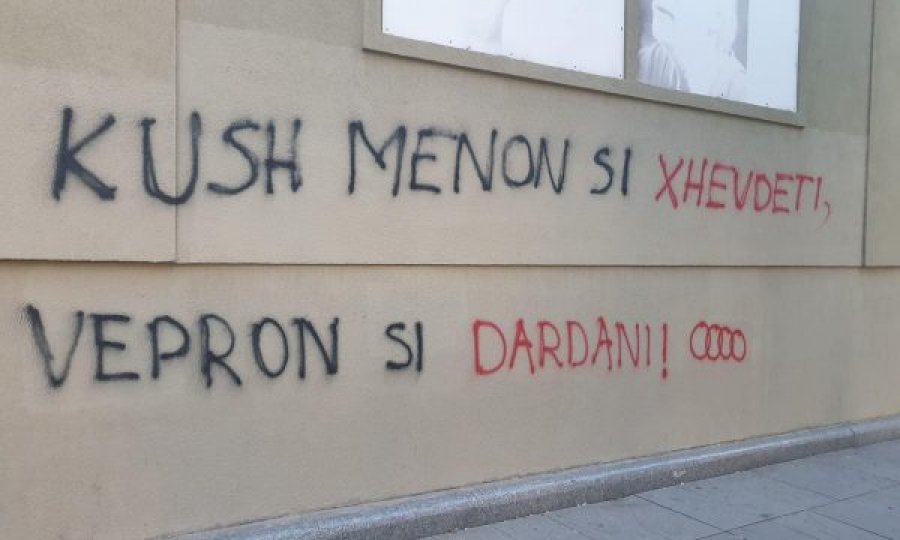 KUSH MENON SI XHEVDETI,
VEPRON SI DARDANI! OOOO